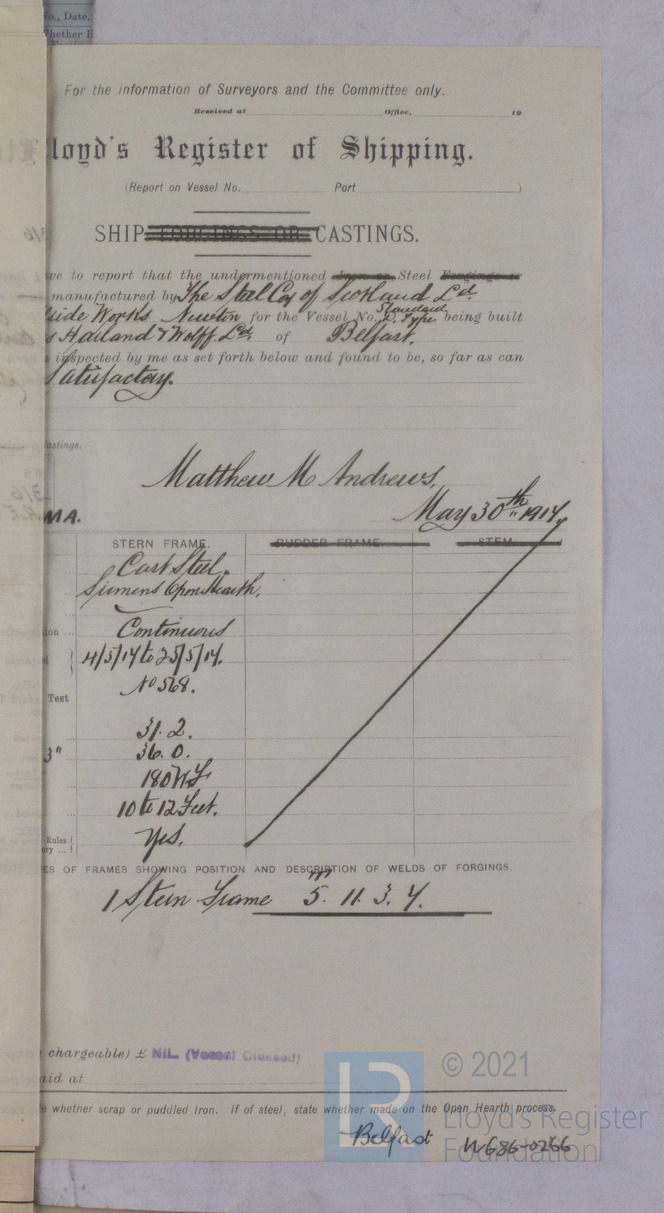 No., Date,
Whether B
For the information of Surveyors and the Committee only.
Received at Office, 19
loyd's Register of Shipping.
(Report on Vessel No. Port )
SHIP FORGINGS OR CASTINGS.
ve to report that the undermentioned Iron or Steel Forgings or
manufactured by The Steel Coy of Scotland Ld.
side Works Newton for the Vessel No. Standard D. Type being built
s Harland & Wolff. Ld. of Belfast.
inspected by me as set forth below and found to be, so far as can
Satisfactory.
Castings.
Matthew M Andrews,
May 30th
MA.
STERN FRAME. RUDDER FRAME. STEM.
Cast Steel.
Siemens Open Hearth.
ion ... Continuous
4/5/17 to 25/5/17.
Test No 568.
31. 2.
3" 36. 0.
180
10 to 12 Feet.
Rules
ory ... Yes.
ES OF FRAMES SHOWING POSITION AND DESCRIPTION OF WELDS OF FORGINGS.
1 Stern Frame 5. 11. 3. 7.
chargeable) £ NIL. (Vessel Classed)
aid at
e whether scrap or puddled Iron. If of steel, state whether made on the Open Hearth process.
© 2021
LR
Lloyd's Register
Foundation
Belfast W686-0266